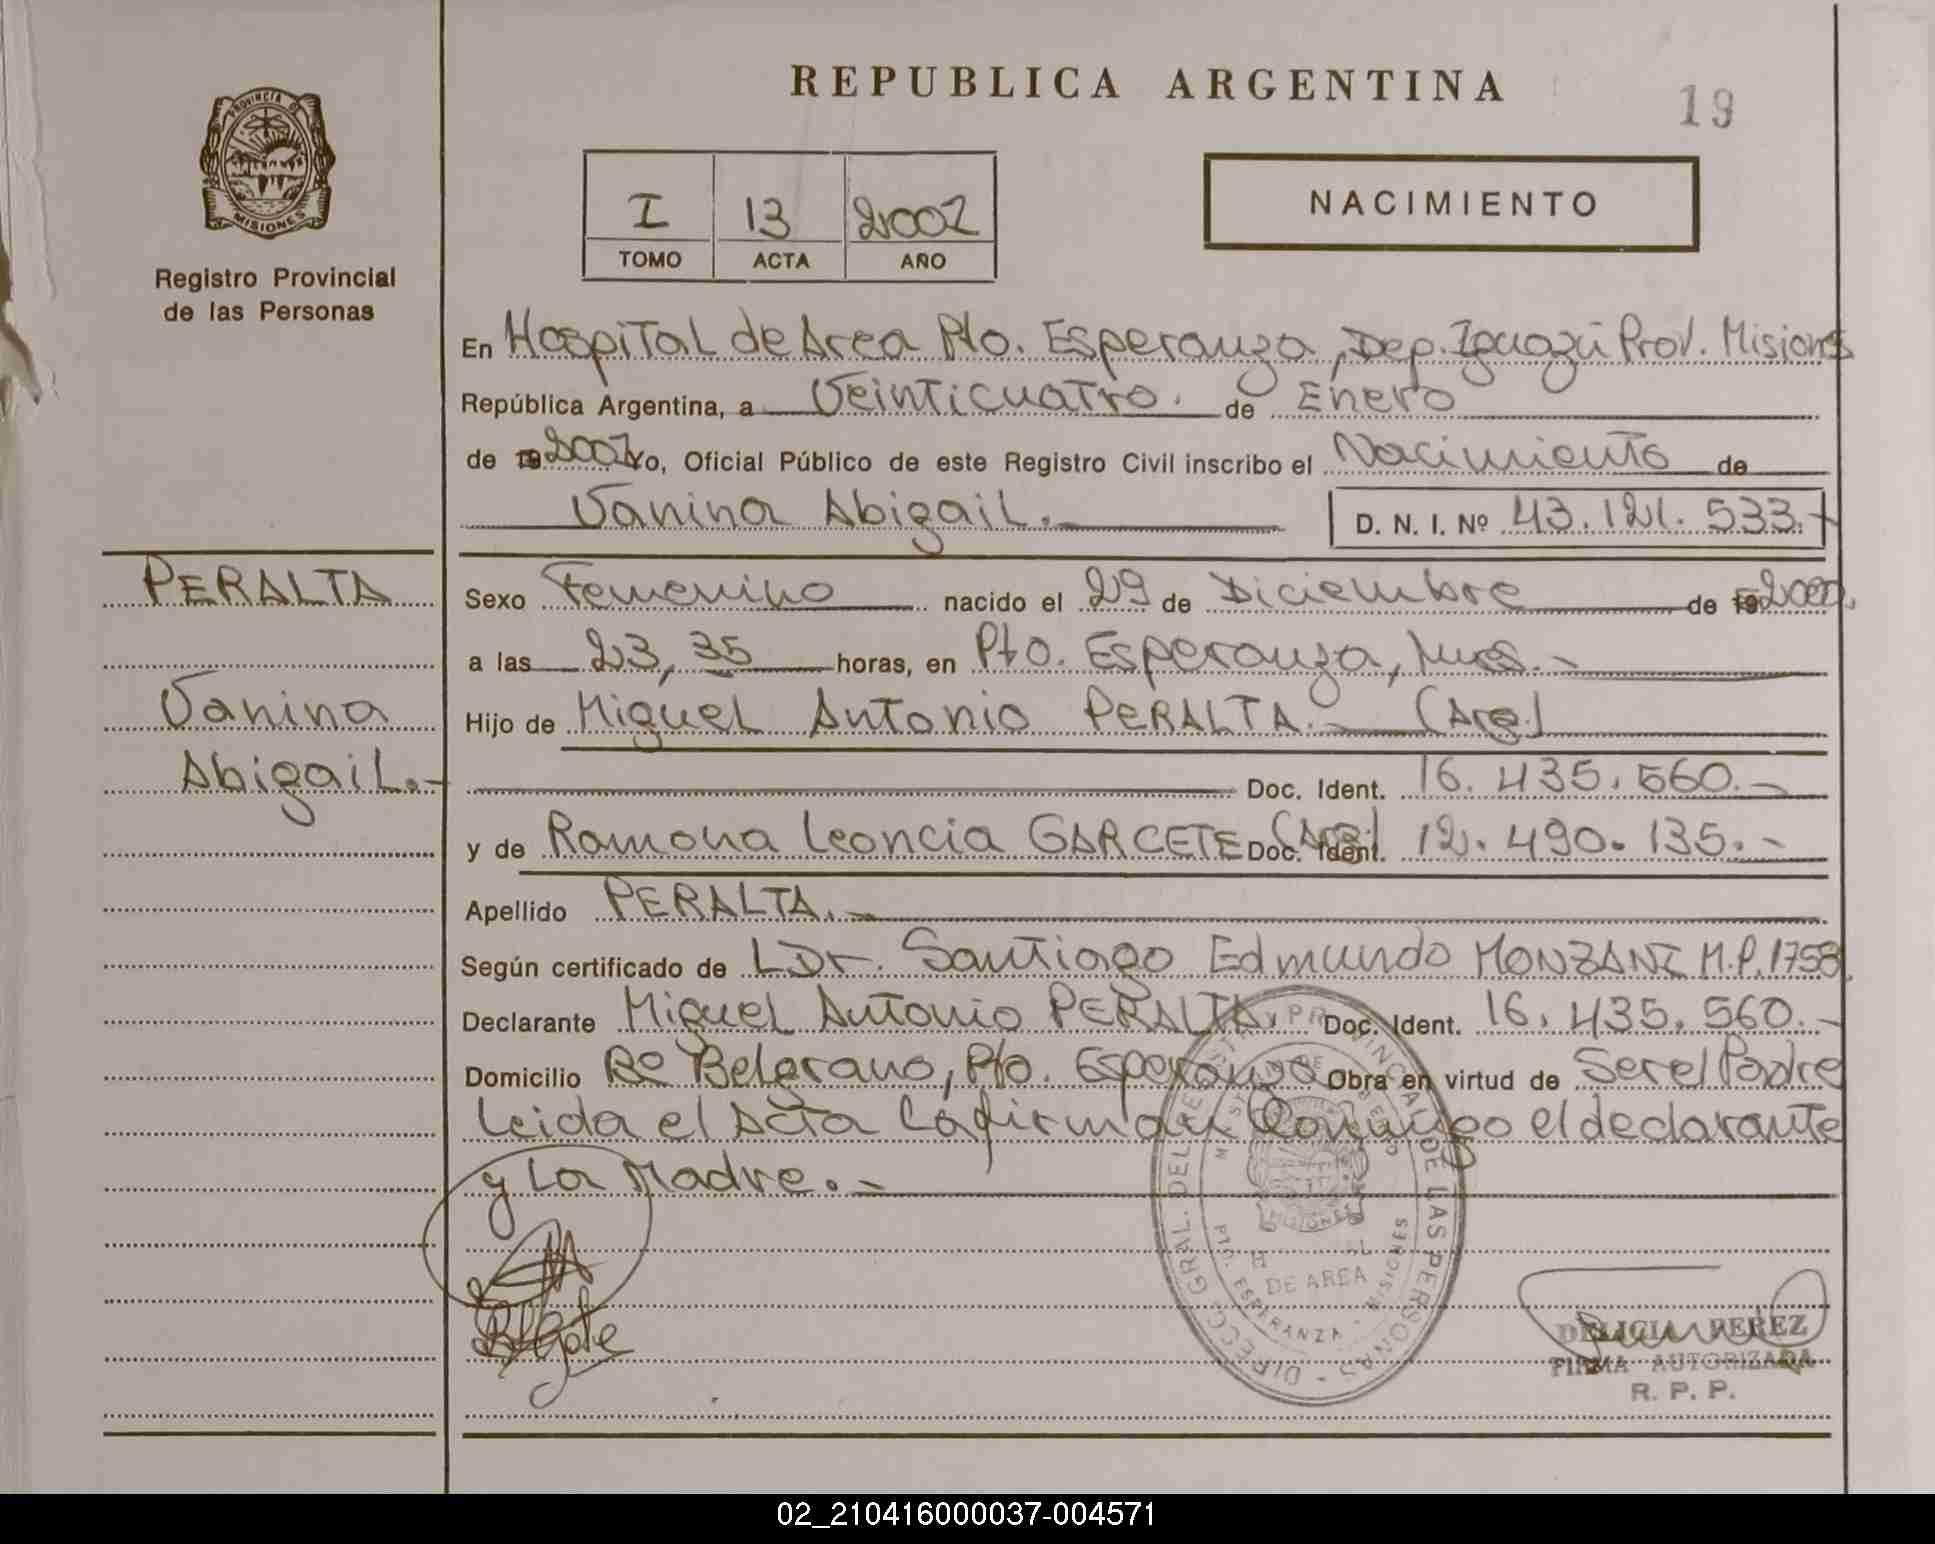 REPUBLICA ARGENTINA
19
PROVINCIA DE
MISIONES
Registro Provincial
de las Personas
I 13 2002
TOMO ACTA AÑO
NACIMIENTO
En Hospital de Area Pto. Esperanza, Dep. Iguazú Prov. Misiones
República Argentina, a Veinticuatro. de Enero
de 19 2002 Yo, Oficial Público de este Registro Civil inscribo el Nacimiento de
Vanina Abigail. D. N. I. Nº 43.121.533.-
PERALTA
Vanina
Abigail.-
Sexo Femenino nacido el 29 de Diciembre de 19
a las 23,35 horas, en Pto. Esperanza, Mnes.-
Hijo de Miguel Antonio PERALTA.- (Arg.)
Doc. Ident. 16.435.560.-
y de Ramona Leoncia GARCETE (Arg.) Doc. Ident. 12.490.135.-
Apellido PERALTA.-
Según certificado de Dr. Santiago Edmundo MONZANI M.P. 1758.
Declarante Miguel Antonio PERALTA. Doc. Ident. 16.435.560.-
Domicilio Bº Belgrano, Pto. Esperanza Obra en virtud de Ser el Padre
Leida el Acta la firman Conmigo el declarante
y La Madre.-
DIRECC. GRAL. DEL REGISTRO PROVINCIAL DE LAS PERSONAS
MISIONES
DE AREA
PTO. ESPERANZA - MISIONES
DELICIA PEREZ
FIRMA AUTORIZADA
R. P. P.
02_210416000037-004571